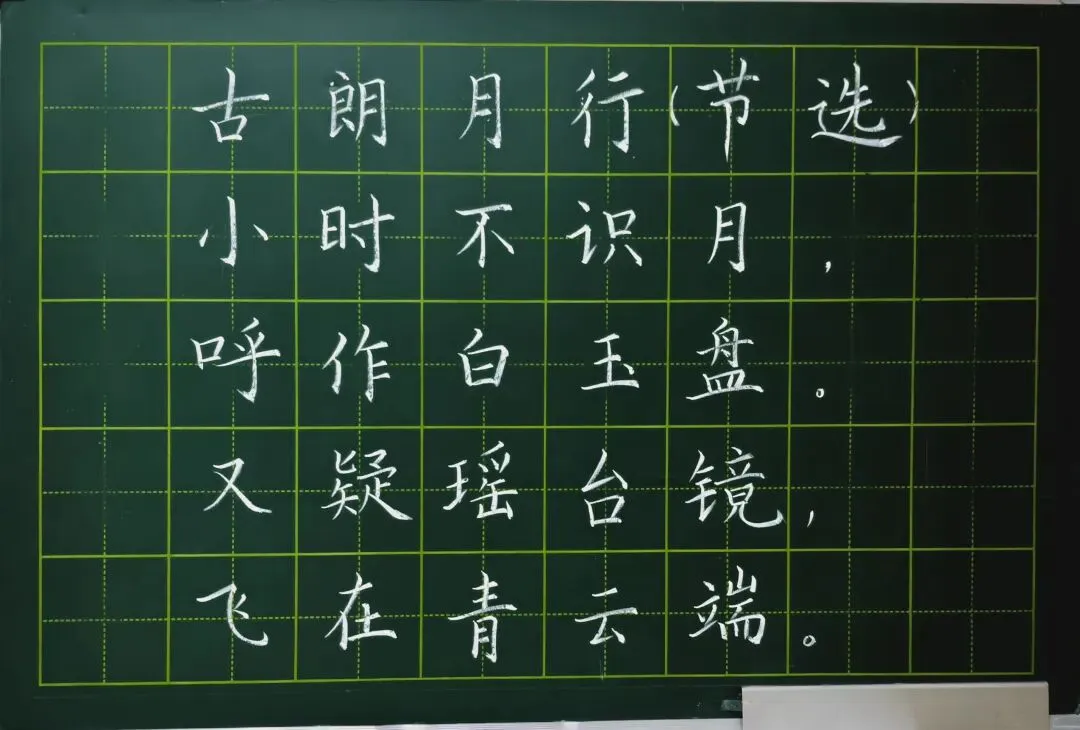 古朗月行(节选)
小时不识月，
呼作白玉盘。
又疑瑶台镜，
飞在青云端。